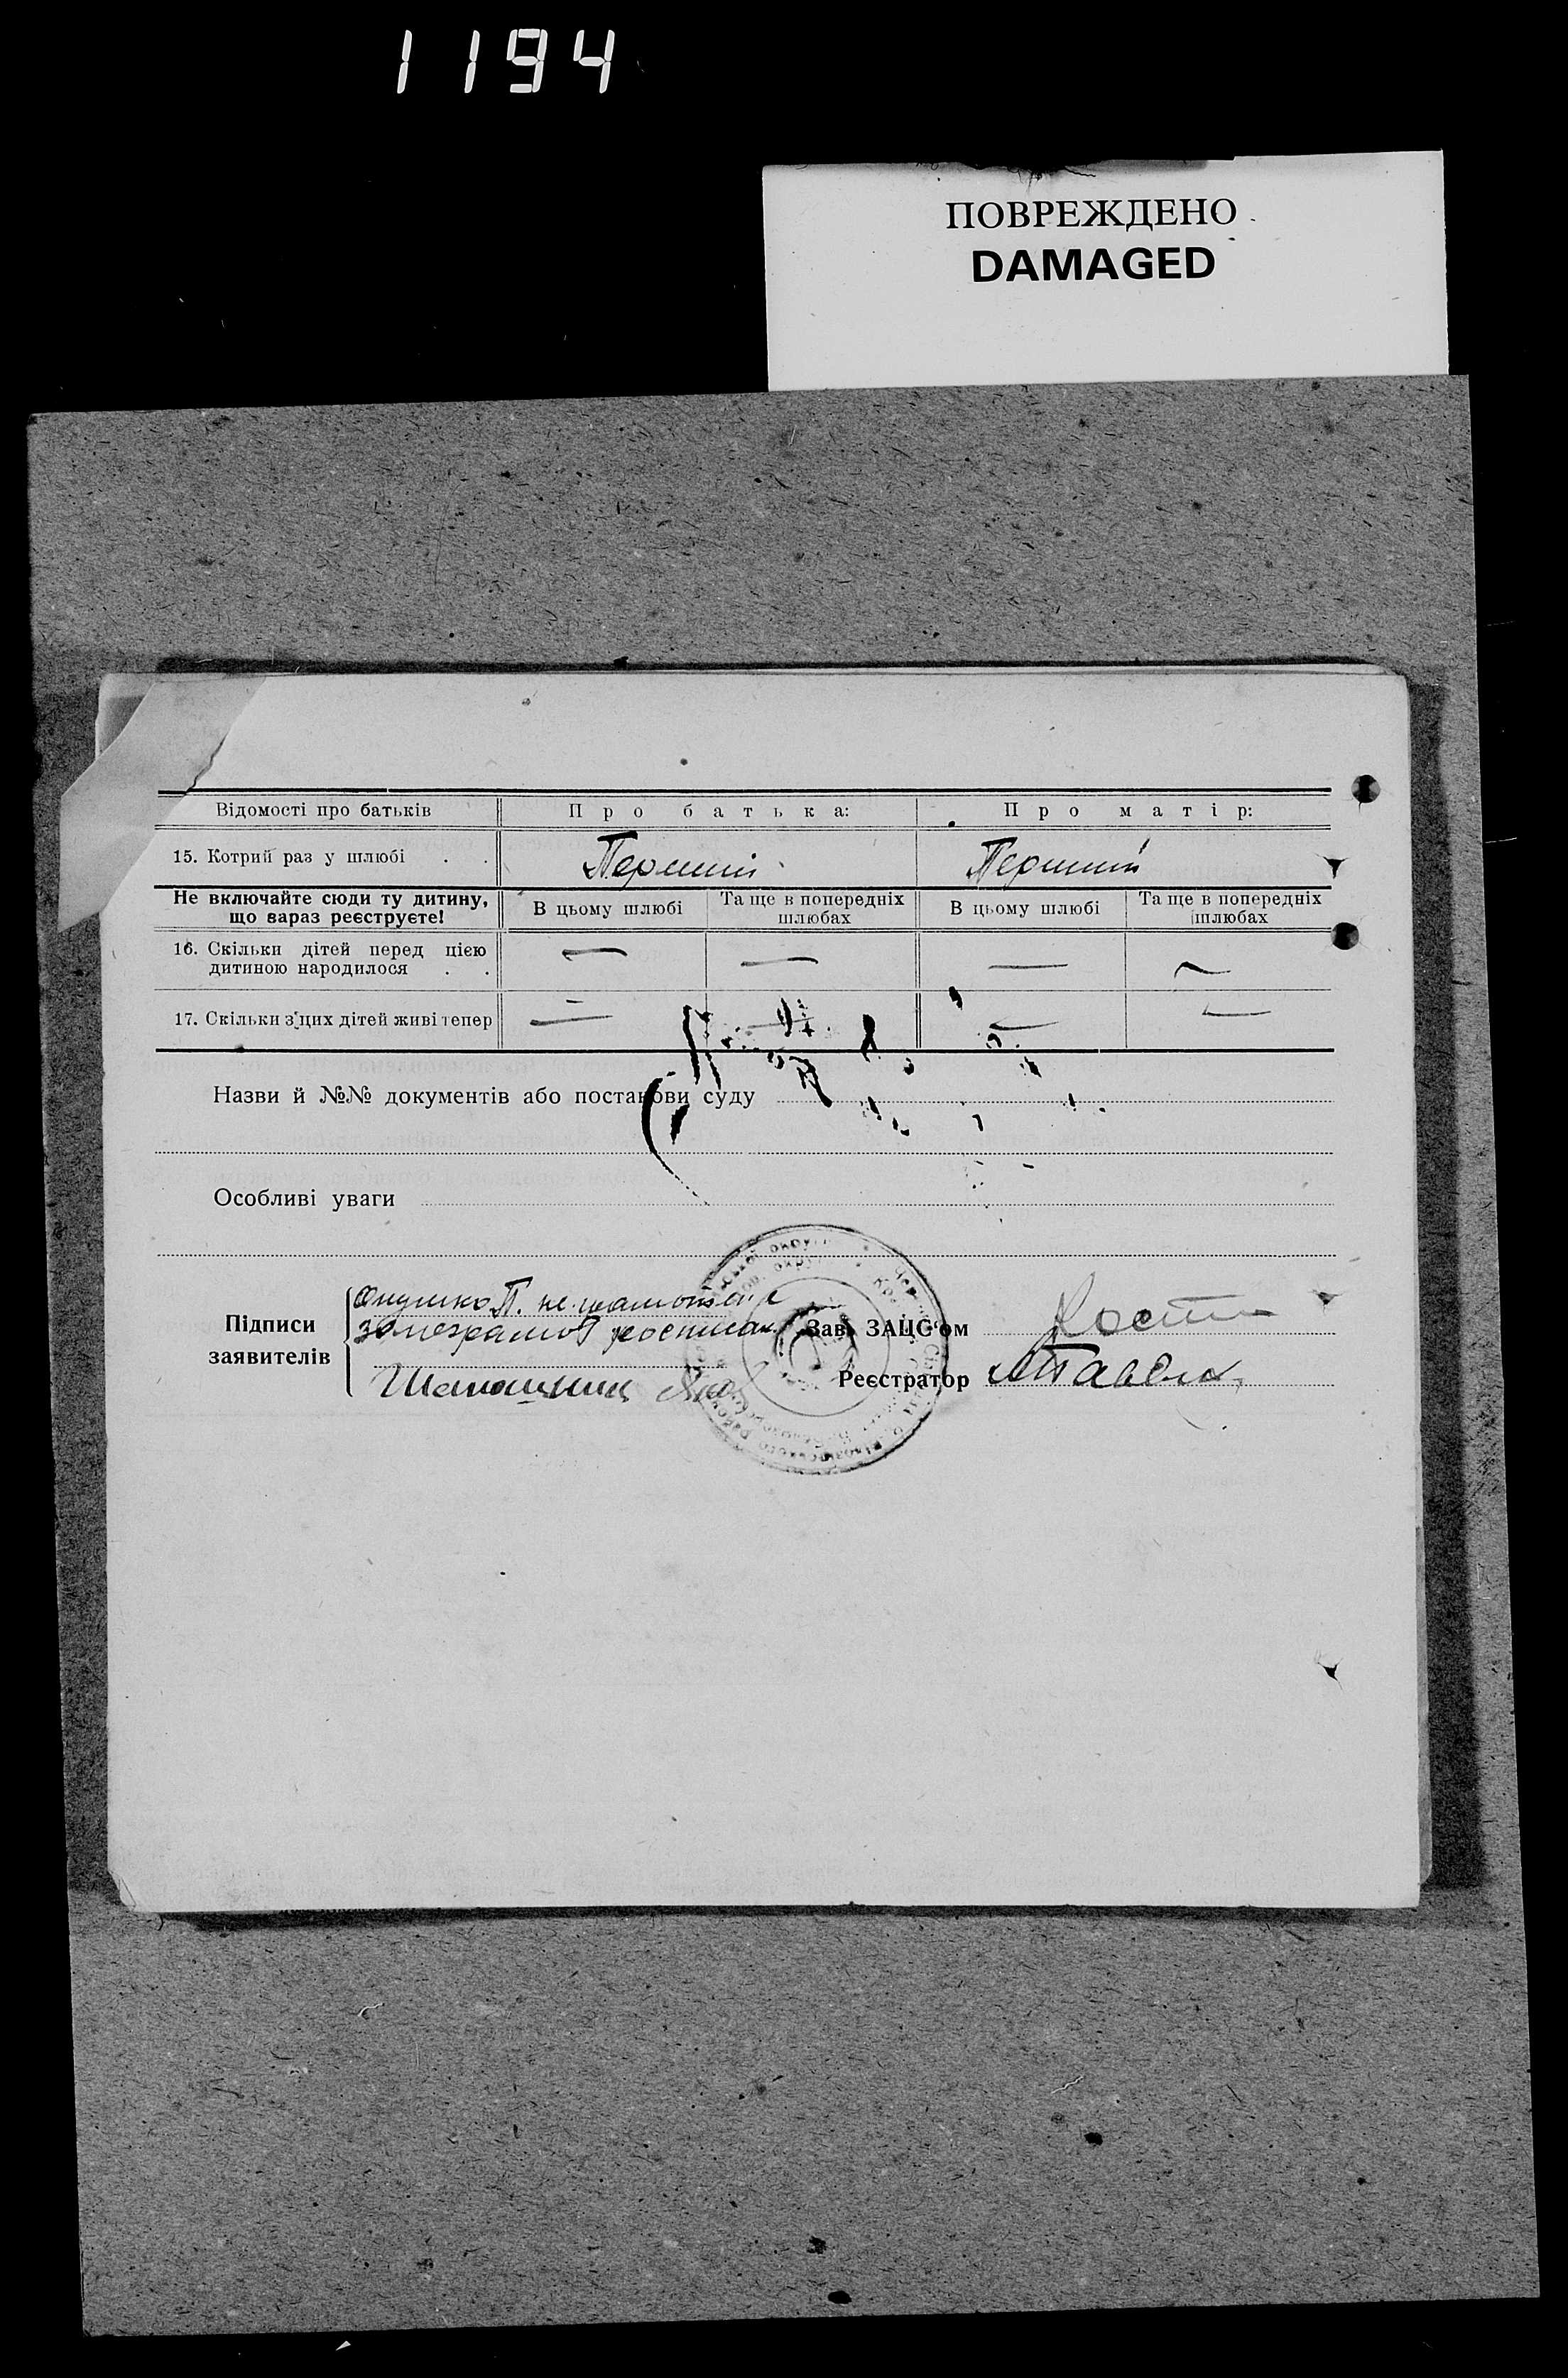 1194
ПОВРЕЖДЕНО
DAMAGED
Відомості про батьків Про батька: Про матір:
15. Котрий раз у шлюбі . . Перший Перший
Не включайте сюди ту дитину, що вараз реєструєте! В цьому шлюбі Та ще в попередніх шлюбах В цьому шлюбі Та ще в попередніх шлюбах
16. Скільки дітей перед цією дитиною народилося . . — — — —
17. Скільки з цих дітей живі тепер — — — —
Назви й №№ документів або постанови суду
Особливі уваги
Підписи заявителів
П.
Зав. ЗАЦС'ом
Реєстратор